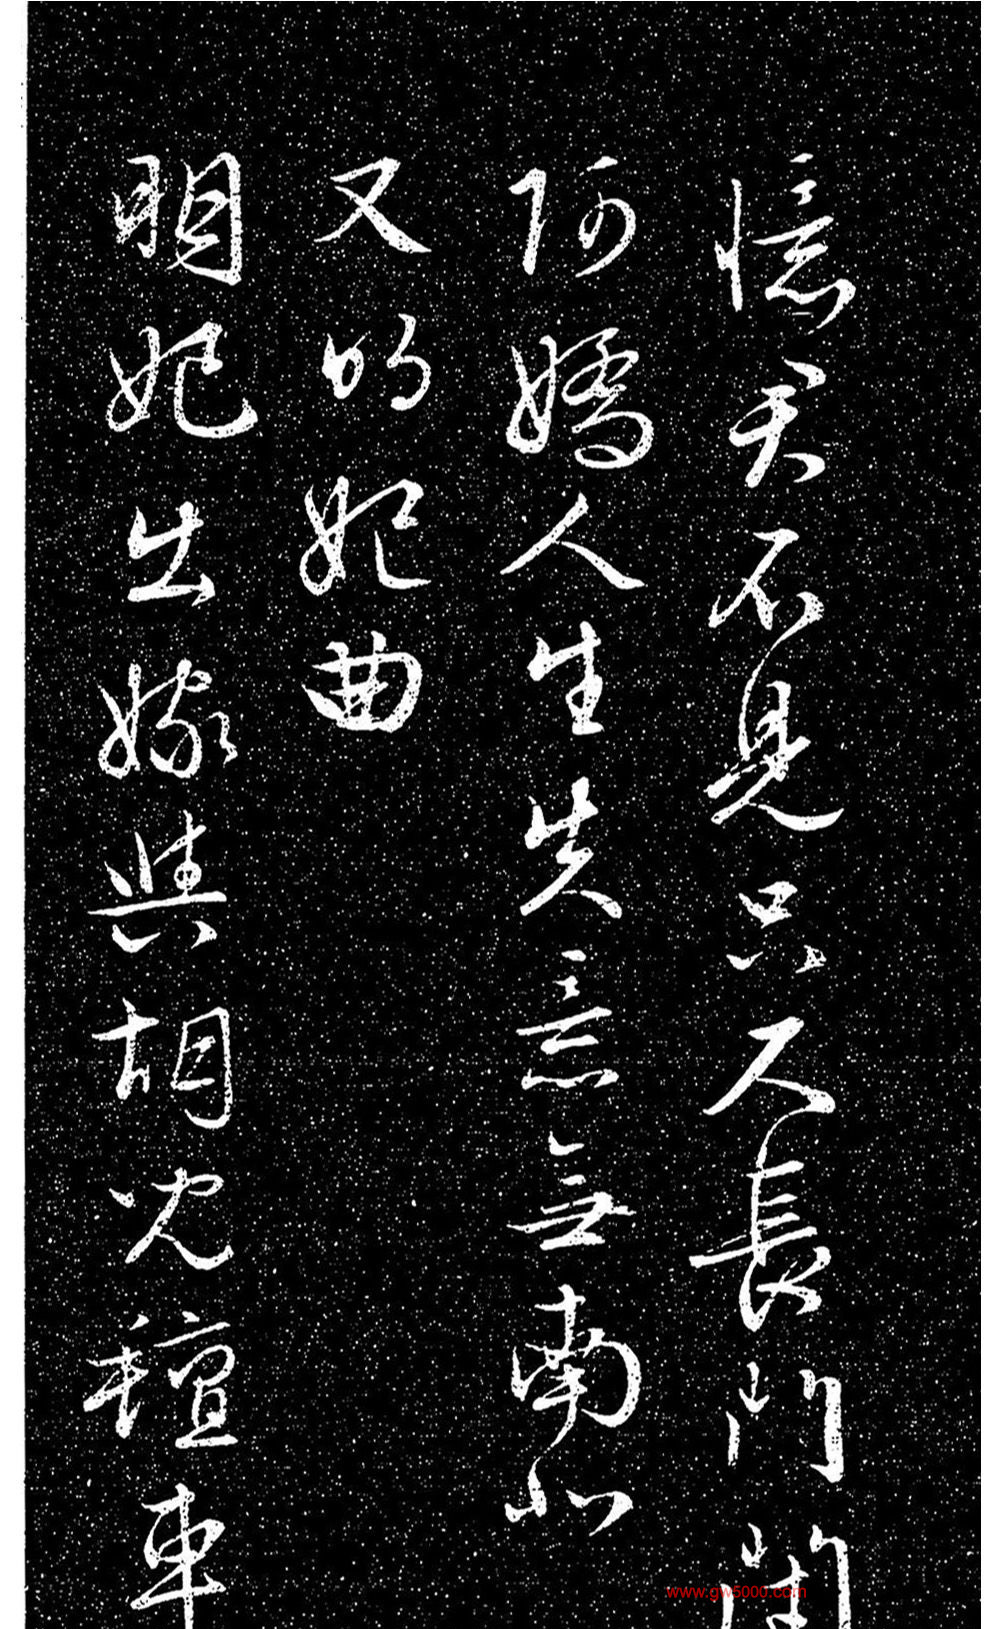 憶君不見只尺長門閉
阿嬌人生失意無南北
又明妃曲
明妃出嫁與胡兒氈車
www.gw5000.com